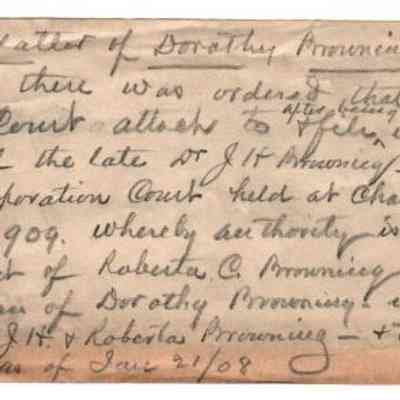 Matter of Dorothy Browning
there was ordered that
Court attach to & file after being
the late Dr J H Browning
poration Court held at Cha
909. whereby authority is
t of Roberta C. Browning
en of Dorothy Browning
J. H. & Roberta Browning — &
as of Jan 21/08